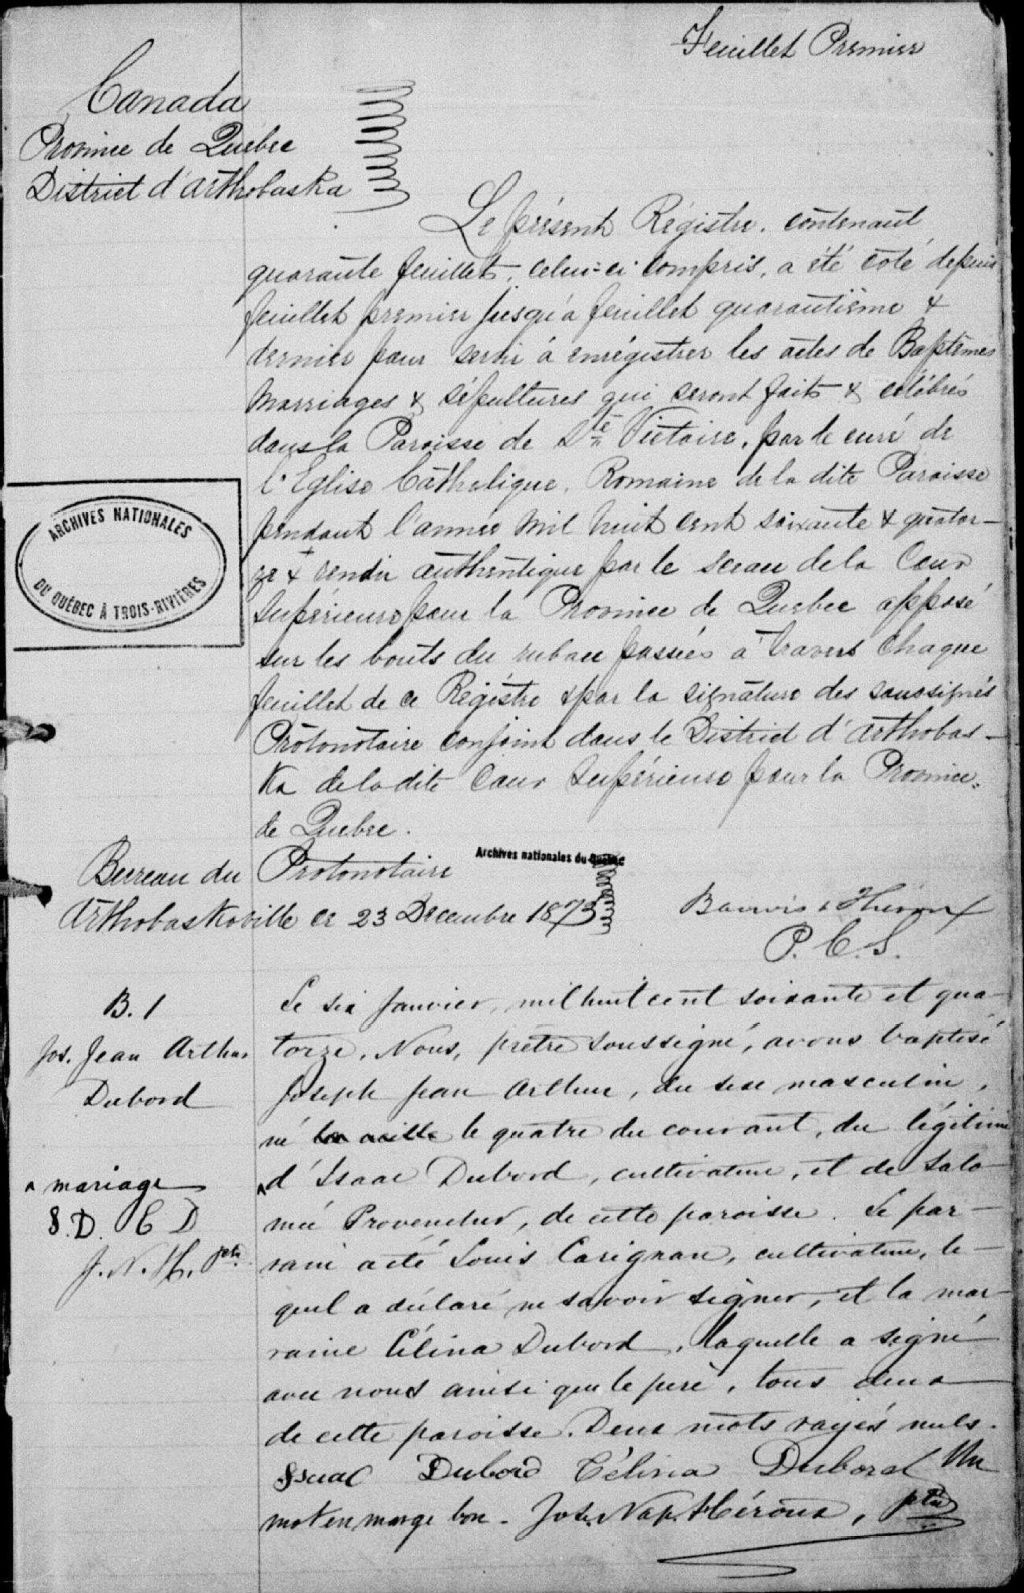 Feuillet Premier
Canada
Province de Québec
District d'Arthabaska
Le présent Régistre, contenant
quarante feuillets, celui-ci compris, a été coté depuis
feuillet premier jusqu'à feuillet quarantième &
dernier pour servir à enrégistrer les actes de Baptêmes
Marriages & Sépultures qui seront faits & célébrés
dans la Paroisse de Ste Victoire, par le curé de
l'Eglise Catholique Romaine de la dite Paroisse
pendant l'année mil huit cent soixante & quator-
ze & rendu authentique par le sceau de la Cour
Supérieure pour la Province de Québec apposé
sur les bouts du ruban passés à travers chaque
feuillet de ce Régistre & par la signature des soussignés
Protonotaire conjoint dans le District d'Arthabas-
ka de la dite Cour Supérieure pour la Province
de Québec.
ARCHIVES NATIONALES
DU QUÉBEC À TROIS-RIVIÈRES
Bureau du Protonotaire
Archives nationales du Québec
Arthabaskaville ce 23 Decembre 1873
P. C. S.
B. 1
Jos. Jean Arthur
Dubord
Le six Janvier, mil huit cent soixante et qua-
torze, Nous, prêtre soussigné, avons baptisé
Joseph Jean Arthur, du sexe masculin,
né la veille le quatre du courant, du légitime
^ d'Isaac Dubord, cultivateur, et de Salo-
mée Provencher, de cette paroisse. Le par-
rain a été Louis Carignan, cultivateur, le-
quel a déclaré ne savoir signer, et la mar-
raine Célina Dubord, laquelle a signé
avec nous ainsi que le père, tous deux
de cette paroisse. Deux mots rayés nuls.
^ mariage
I. D. C D
J. N. H. ptre
Isaac Dubord Célina Dubord Un
mot en marge bon. Jos. Nap. Héroux, ptre